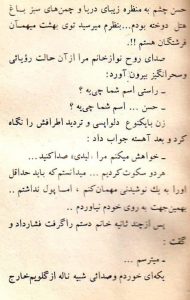 حسن چشم به منظره زیبای دریا و چمن‌های سبز باغ
هتل دوخته بودم...بنظرم میرسید توی بهشت میهمان
فرشتگان هستم!!.
صدای روح نوازخانم مرا از آن حالت رؤیائی
وسحرانگیز بیرون آورد:
ـ راستی اسم شما چی‌یه؟
ـ حسن ... اسم شما چی‌یه؟
زن بایکنوع دلواپسی و تردید اطرافش را نگاه
کرد و بعد آهسته جواب داد:
ـ خواهش میکنم مرا «لیدی» صدا کنید...
هردو سکوت کردیم ... میدانستم که باید حداقل
اورا به یك نوشیدنی مهمان‌کنم، اما پول نداشتم..
بهمین‌جهت به روی خودم نیاوردم..
پس از چند ثانیه خانم دستم را گرفت فشارداد و
گفت:
ـ میترسم ...
یکه‌ای خوردم وصدائی شبیه ناله از گلویم‌خارج